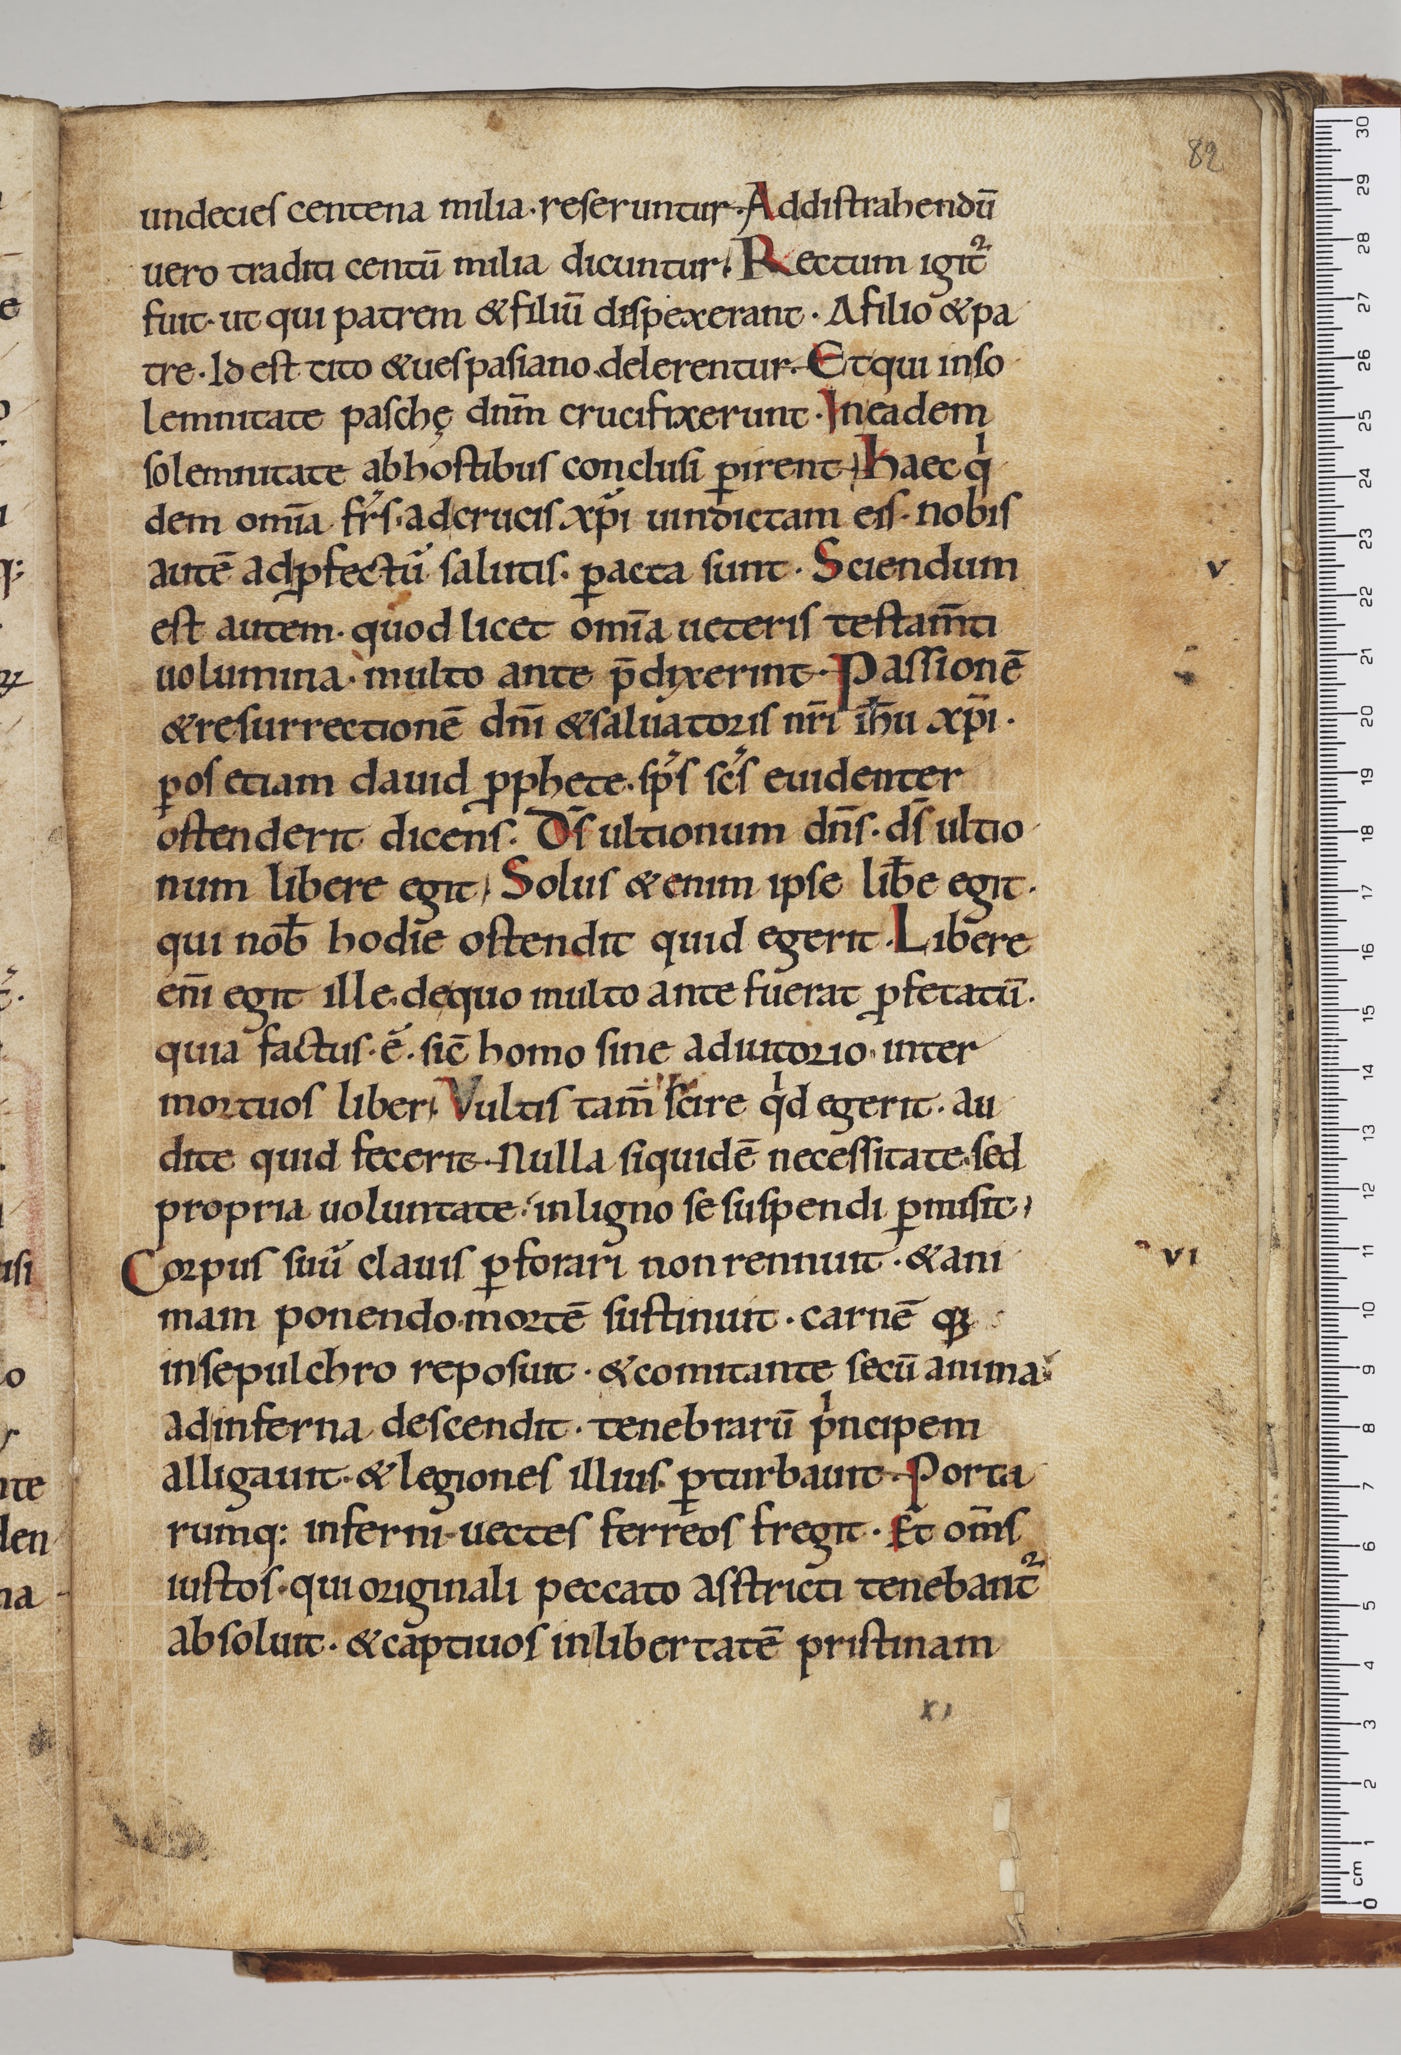 82
undecies centena milia · reseruntur · Addistrahendū
uero traditi centū milia dicuntur · Rectum igit᷑
fuit · ut qui patrem & filiū dispexerant · A filio & pa
tre · Id est tito & uespasiano delerentur · Et qui inso
lemnitate paschę dnm̄ crucifixerunt · In eadem
solemnitate ab hostibus conclusi ꝑirent · Haec qⁱ
dem omīa fr̄s · ad crucis xp̄i uindictam eis · nobis
autē ad ꝓfectū salutis · ꝑacta sunt · Sciendum
v
est autem · quod licet omīa ueteris testam̄ti
uolumina · multo ante p̄dixerint · Passionē
& resurrectionē dnī & saluatoris nr̄i ih̄u xp̄i ·
ꝑ os etiam dauid ꝓphete · sp̄s sc̄s euidenter
ostenderit dicens · D̄s ultionum dn̄s · d̄s ultio
num libere egit · Solus & enim ipse lib̄e egit ·
qui nob̄ hodie ostendit quid egerit · Libere
eni̅ egit ille · de quo multo ante fuerat ꝓfetatū ·
quia factus · ē · sic̄ homo sine adiutorio · inter
mortuos liber · Vultis tam̄ scire qⁱd egerit · au
dite quid fecerit · Nulla siquidē necessitate · sed
propria uoluntate · in ligno se suspendi ꝑmisit ·
Corpus suū clauis ꝑforari non rennuit · & ani
vi
mam ponendo · mortē sustinuit · carnē qꝫ
in sepulchro reposuit · & comitante secū anima
ad inferna descendit · tenebrarū pⁱncipem
alligauit · & legiones illius ꝑturbauit · Porta
rumq: inferni · uectes ferreos fregit · Et om̄s
iustos · qui originali peccato asstricti tenebant᷑
absoluit · & captiuos in libertatē pristinam
xi